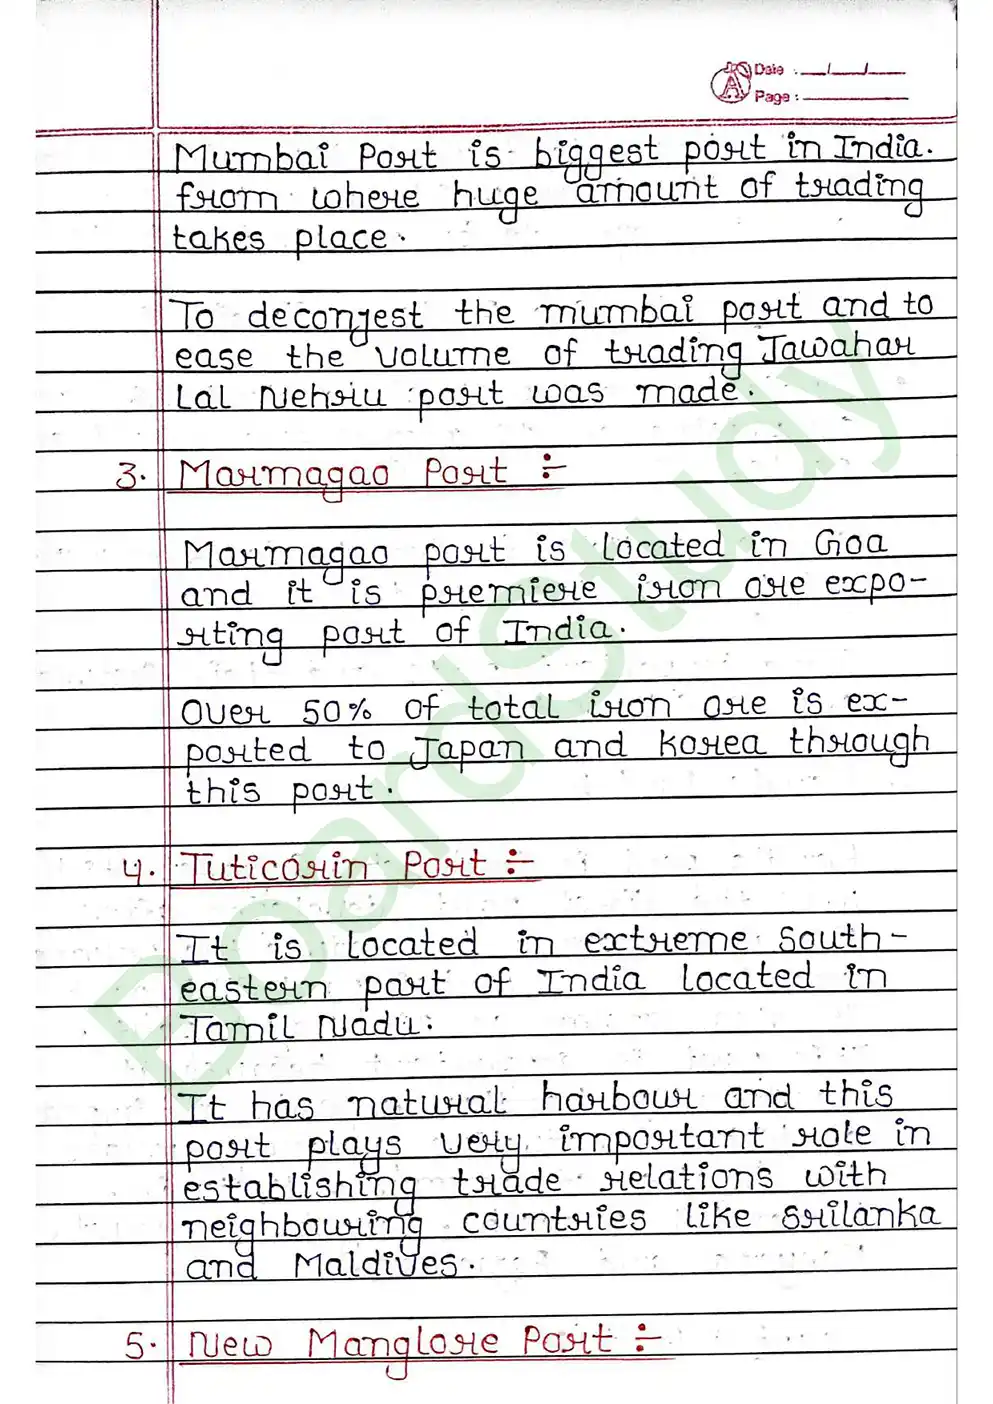 Date : __/__/__
Page : ______
Mumbai Port is biggest port in India.
from where huge amount of trading
takes place.
To decongest the mumbai port and to
ease the volume of trading Jawahar
Lal Nehru port was made.
3. Marmagao Port :-
Marmagao port is located in Goa
and it is premiere iron ore expo-
rting port of India.
Over 50% of total iron ore is ex-
ported to Japan and Korea through
this port.
4. Tuticorin Port :-
It is located in extreme south-
eastern part of India located in
Tamil Nadu.
It has natural harbour and this
port plays very important role in
establishing trade relations with
neighbouring countries like Srilanka
and Maldives.
5. New Manglore Port :-
BoardStudy